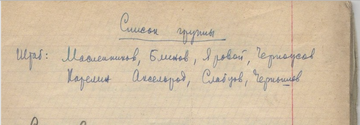 Список группы
Штаб: Масленников, Блинов, Яровой, Черноусов
Карелин Аксельрод, Слобцов, Чернышов